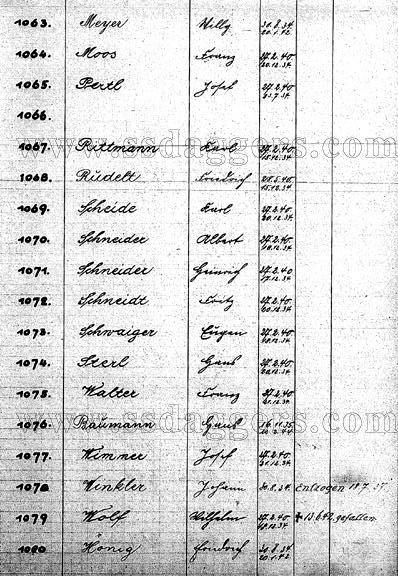 1063. Meyer Willy 30.8.34
20.1.42
1064. Moos Franz 27.2.40.
20.12.34
1065. Pertl Josef 27.2.40.
1066.
www.ssdaggers.com
1067. Rittmann Karl 27.2.40.
15.12.34
1068. Rüdelt Friedrich 28.5.40.
15.12.34
1069. Scheide Karl 27.2.40.
20.12.34
1070. Schneider Albert 27.2.40.
1071. Schneider Heinrich 27.2.40
17.12.34
1072. Schneidt Fritz 27.2.40.
20.12.34
1073. Schwaiger Eugen 27.2.40.
1074. Sterl Hans 27.2.40.
20.12.34
1075. Walter Franz 27.2.40
21.12.34
www.ssdaggers.com
1076. Baumann Hans 16.11.35
1077. Wimmer Josef 27.2.40.
21.12.34
1078 Winkler Johann 30.8.34. Entzogen 18.7.37
1079 Wolf Wilhelm 27.2.40. + 13.6.42. gefallen
1080 Hönig Friedrich 30.8.34
20.1.42